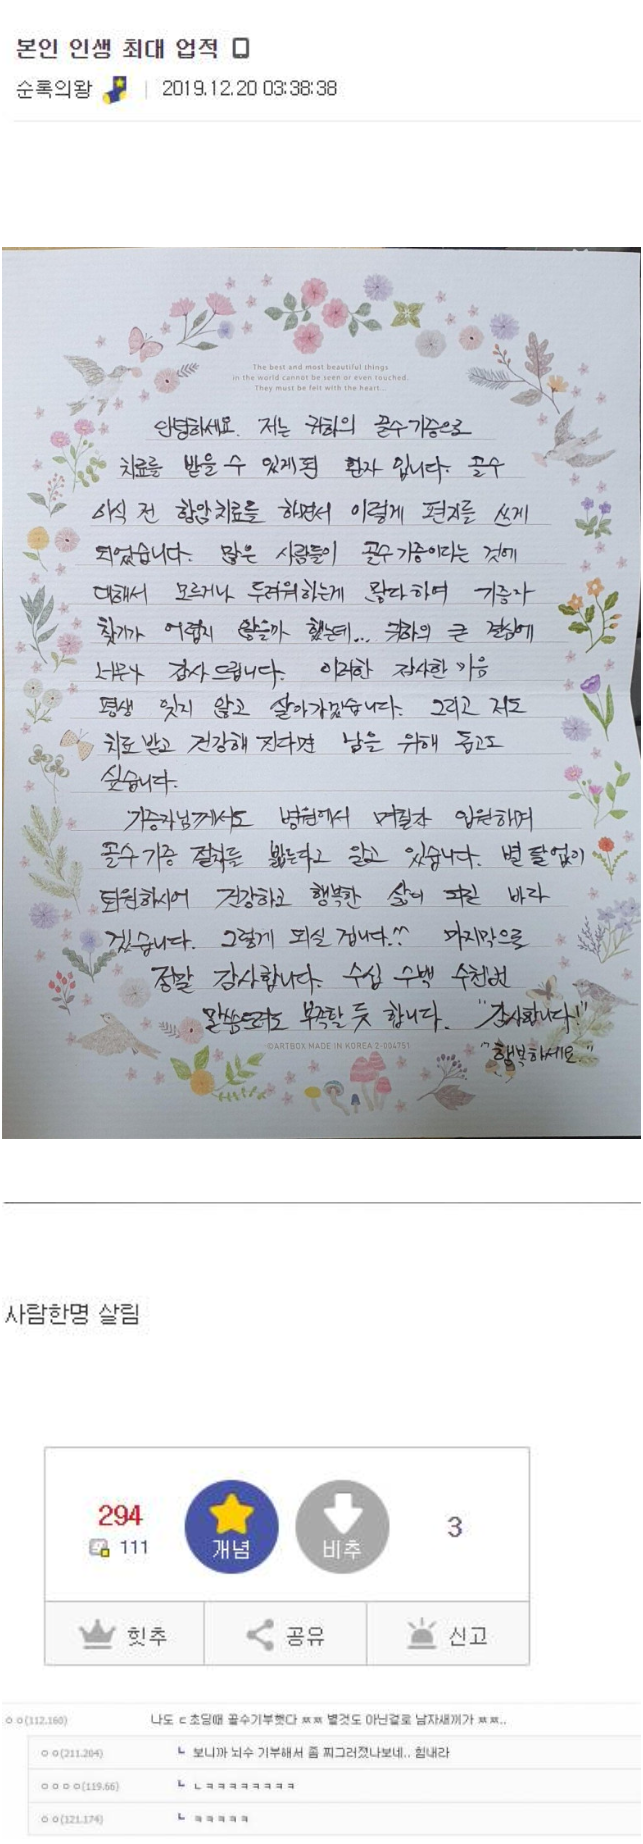 본인 인생 최대 업적
순록의왕 2019.12.20 03:38:38
The best and most beautiful things
in the world cannot be seen or even touched.
They must be felt with the heart...
안녕하세요. 저는 귀하의 골수기증으로
치료를 받을 수 있게 된 환자 입니다. 골수
이식 전 항암치료를 하면서 이렇게 편지를 쓰게
되었습니다. 많은 사람들이 골수기증이라는 것에
대해서 모르거나 두려워하는게 많다하여 기증자
찾기가 어렵지 않을까 했는데... 귀하의 큰 결심에
너무나 감사드립니다. 이러한 감사한 마음
평생 잊지 않고 살아가겠습니다. 그리고 저도
치료 받고 건강해 진다면 남을 위해 돕고도
싶습니다.
기증자님께서도 병원에서 며칠간 입원하며
골수기증 절차를 밟는다고 알고 있습니다. 별 탈 없이
퇴원하시어 건강하고 행복한 삶이 되길 바라
겠습니다. 그렇게 되실 겁니다.^^ 마지막으로
정말 감사합니다. 수십 수백 수천번
말씀드려도 부족할 듯 합니다. "감사합니다!"
"행복하세요."
©ARTBOX MADE IN KOREA 2-004751
사람한명 살림
294
111
개념
비추
3
힛추 공유 신고
ㅇㅇ(112.160) 나도 ㄷ초딩때 골수기부햇다 ㅉㅉ 별것도 아닌걸로 남자새끼가 ㅉㅉ..
ㅇㅇ(211.204) ㄴ 보니까 뇌수 기부해서 좀 찌그러졌나보네.. 힘내라
ㅇㅇㅇㅇ(119.66) ㄴ ㄴㅋㅋㅋㅋㅋㅋㅋㅋ
ㅇㅇ(121.174) ㄴ ㅋㅋㅋㅋㅋ